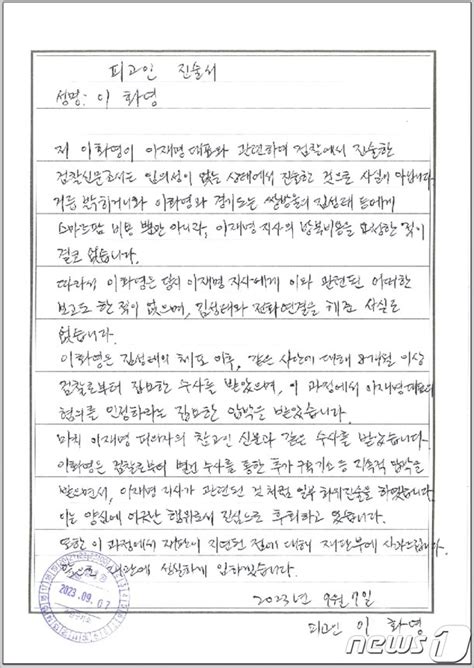 피고인 진술서
성명: 이 화영
저 이화영이 이재명 대표와 관련하여 검찰에서 진술한
검찰신문조서는 임의성이 없는 상태에서 진술한 것으로 사실이 아닙니다.
거듭 밝히거니와 이화영과 경기도는 쌍방울의 김성태 등에게
스마트팜 비용 뿐만 아니라, 이재명 지사의 방북비용을 요청한 적이
결코 없습니다.
따라서 이화영은 당시 이재명 지사에게 이와 관련된 어떠한
보고도 한 적이 없으며, 김성태와 전화연결을 해준 사실도
없습니다.
이화영은 김성태의 체포 이후, 같은 사안에 대해 8개월 이상
검찰로부터 집요한 수사를 받았으며, 이 과정에서 이재명 대표의
혐의를 인정하라는 집요한 압박을 받았습니다.
마치 이재명 피의자의 참고인 신분과 같은 수사를 받았습니다.
이화영은 검찰로부터 별건 수사를 통한 추가 구속기소 등 지속적 압박을
받으면서, 이재명 지사가 관련된 것처럼 일부 허위진술을 하였습니다.
이는 양심에 어긋난 행위로서 진심으로 후회하고 있습니다.
또한 이 과정에서 재판이 지연된 점에 대해 재판부에 사과드립니다.
앞으로 재판에 성실하게 임하겠습니다.
2023.09.07
2023년 9월 7일
피고인 이 화영
news1